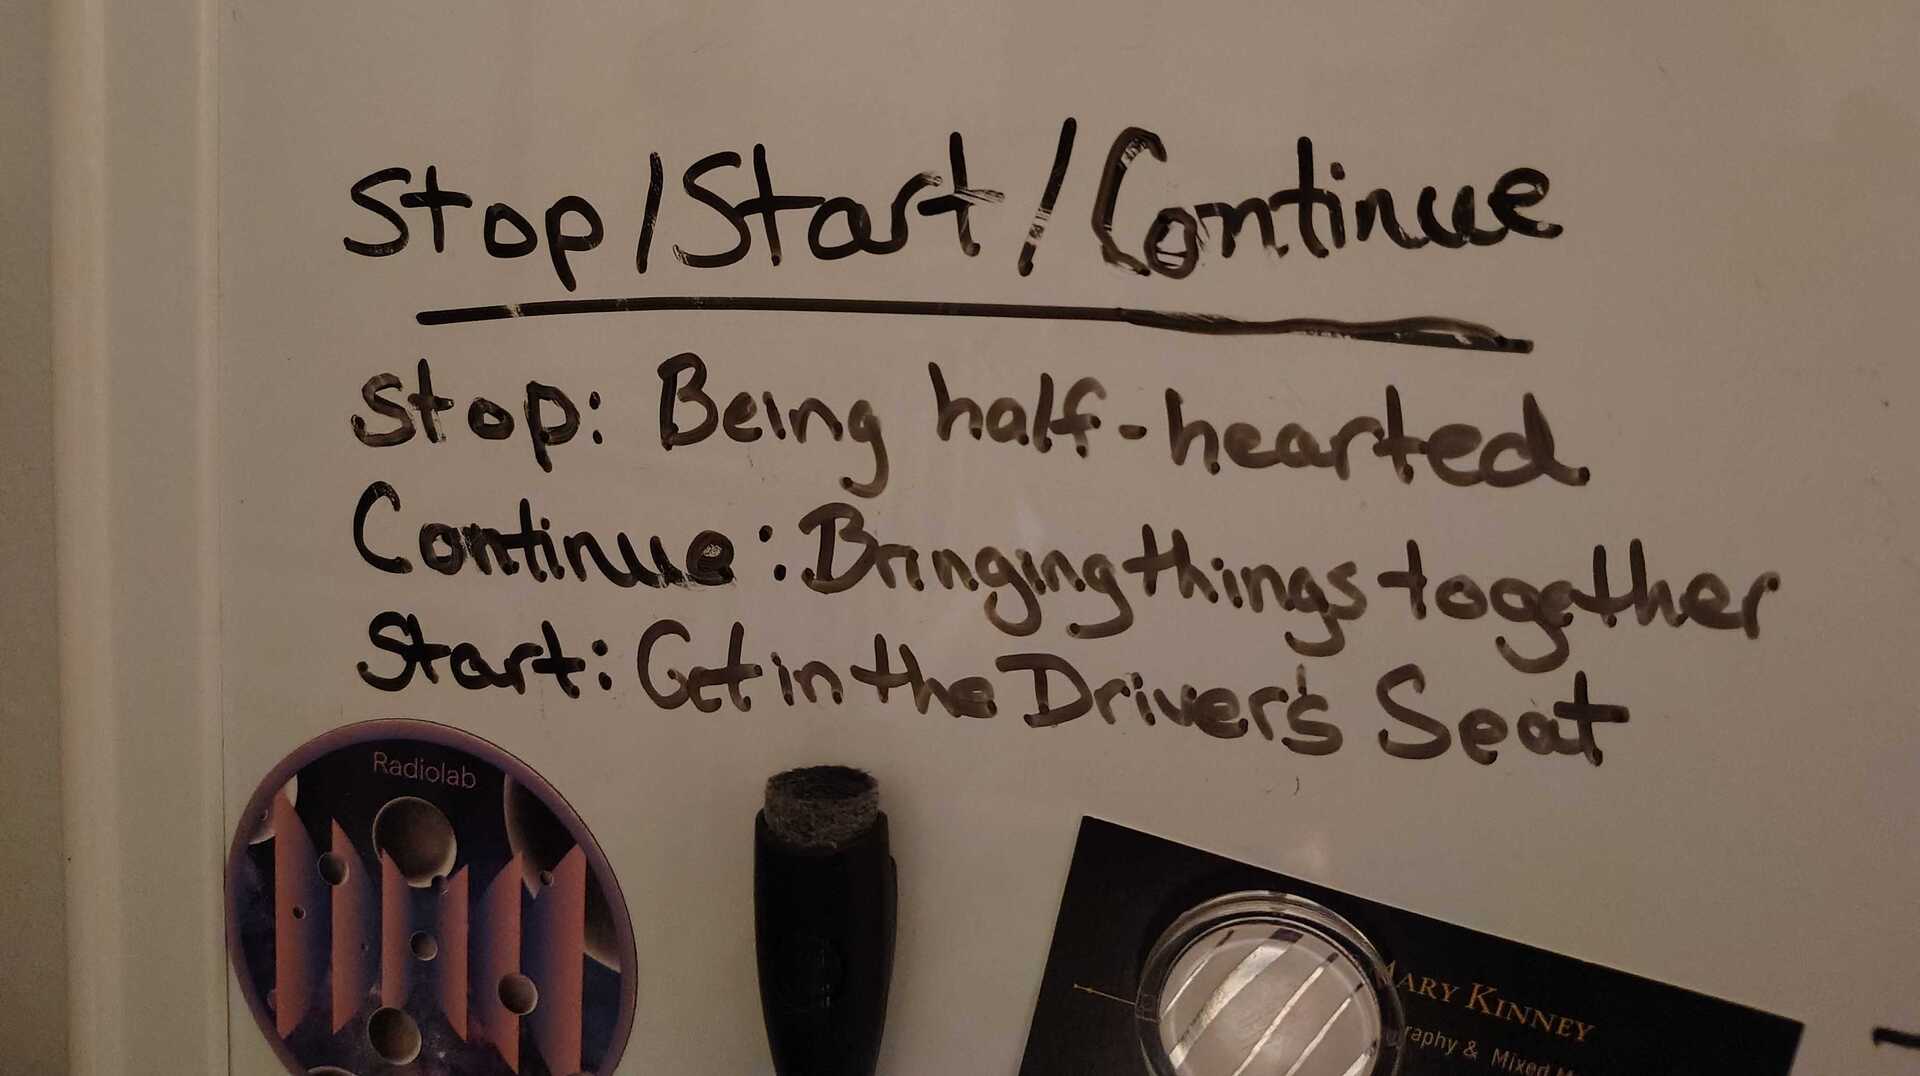 Stop/Start/Continue
Stop: Being half-hearted
Continue: Bringing things together
Start: Get in the Driver's Seat
Radiolab
MARY KINNEY
& Mixed